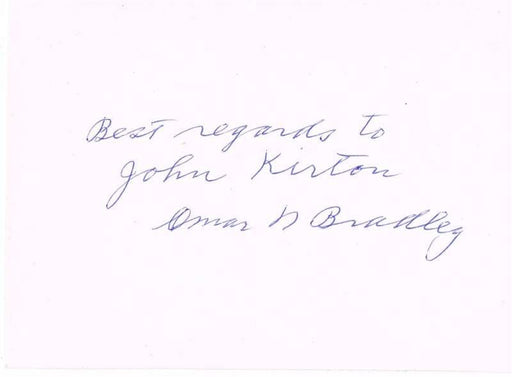 Best regards to
John Kirton
Omar N Bradley